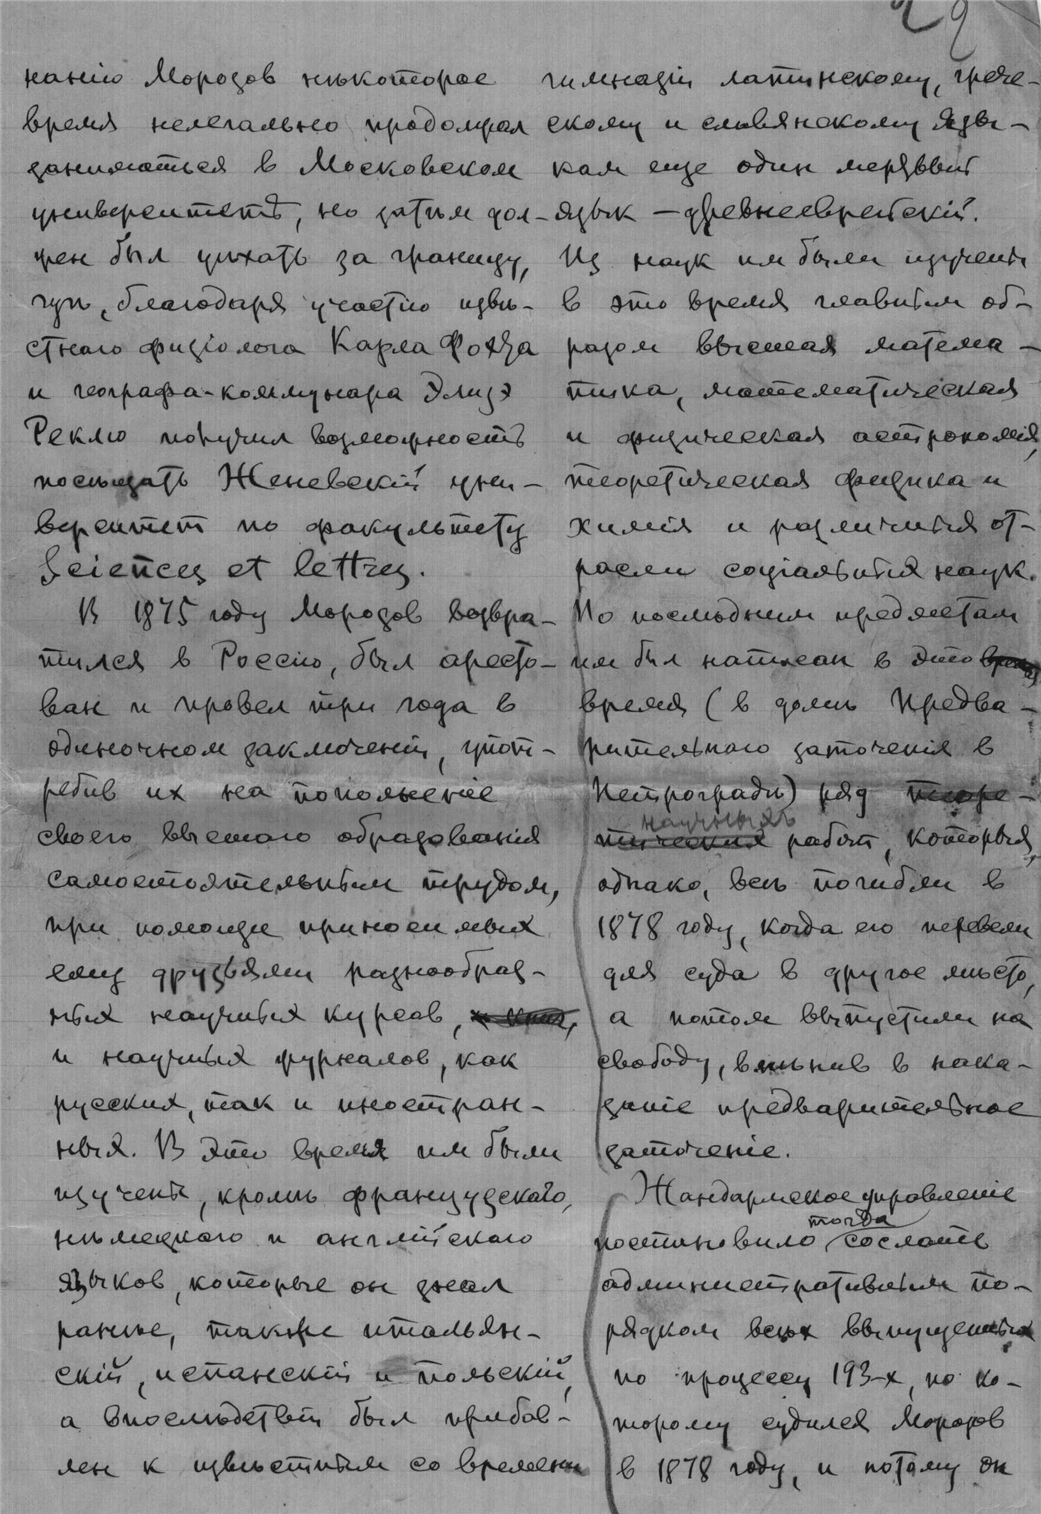 29
нанію Морозов нѣкоторое
время нелегально продолжал
заниматься в Московском
университетѣ, но затѣм дол-
жен был уѣхать за границу,
гдѣ, благодаря участію извѣ-
стнаго физіолога Карла Фохта
и географа-коммунара Элизэ
Реклю получил возможность
посѣщать Женевскій уни-
верситет по факультету
Sciences et lettres.
В 1875 году Морозов возвра-
тился в Россію, был аресто-
ван и провел три года в
одиночном заключеніи, упот-
ребив их на пополненіе
своего высшаго образованія
самостоятельным трудом,
при помощи приносимых
ему друзьями разнообраз-
ных научных курсов,
и научных журналов, как
русских, так и иностран-
ных. В это время им были
изучены, кромѣ французскаго,
нѣмецкаго и англійскаго
языков, которые он знал
раньше, также итальян-
скій, испанскій и польскій,
а впослѣдствіи был прибав-
лен к извѣстным со времени
гимназіи латинскому, грече-
скому и славянскому язы-
кам еще один мертвый
язык — древнееврейскій.
Из наук им были изучены
в это время главным об-
разом высшая матема-
тика, математическая
и физическая астрономія,
теоретическая физика и
химія и различныя от-
расли соціальных наук.
По послѣдним предметам
им был написан в это время
время (в домѣ Предва-
рительнаго заточенія в
Петроградѣ) ряд теоре-
тическия научныхъ работ, которыя,
однако, всѣ погибли в
1878 году, когда его перевели
для суда в другое мѣсто,
а потом выпустили на
свободу, вмѣнив в нака-
заніе предварительное
заточеніе.
Жандармское управленіе
постановило тогда сослать
административным по-
рядком всѣх выпущенных
по процессу 193-х, по ко-
торому судился Морозов
в 1878 году, и потому он